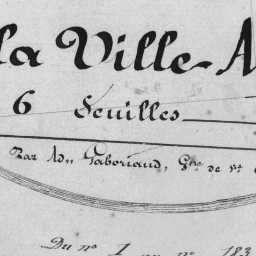 la Ville-A
6 Feuilles
Par Ad. Gaboriaud, Gre de St
Du No 1 au No 183